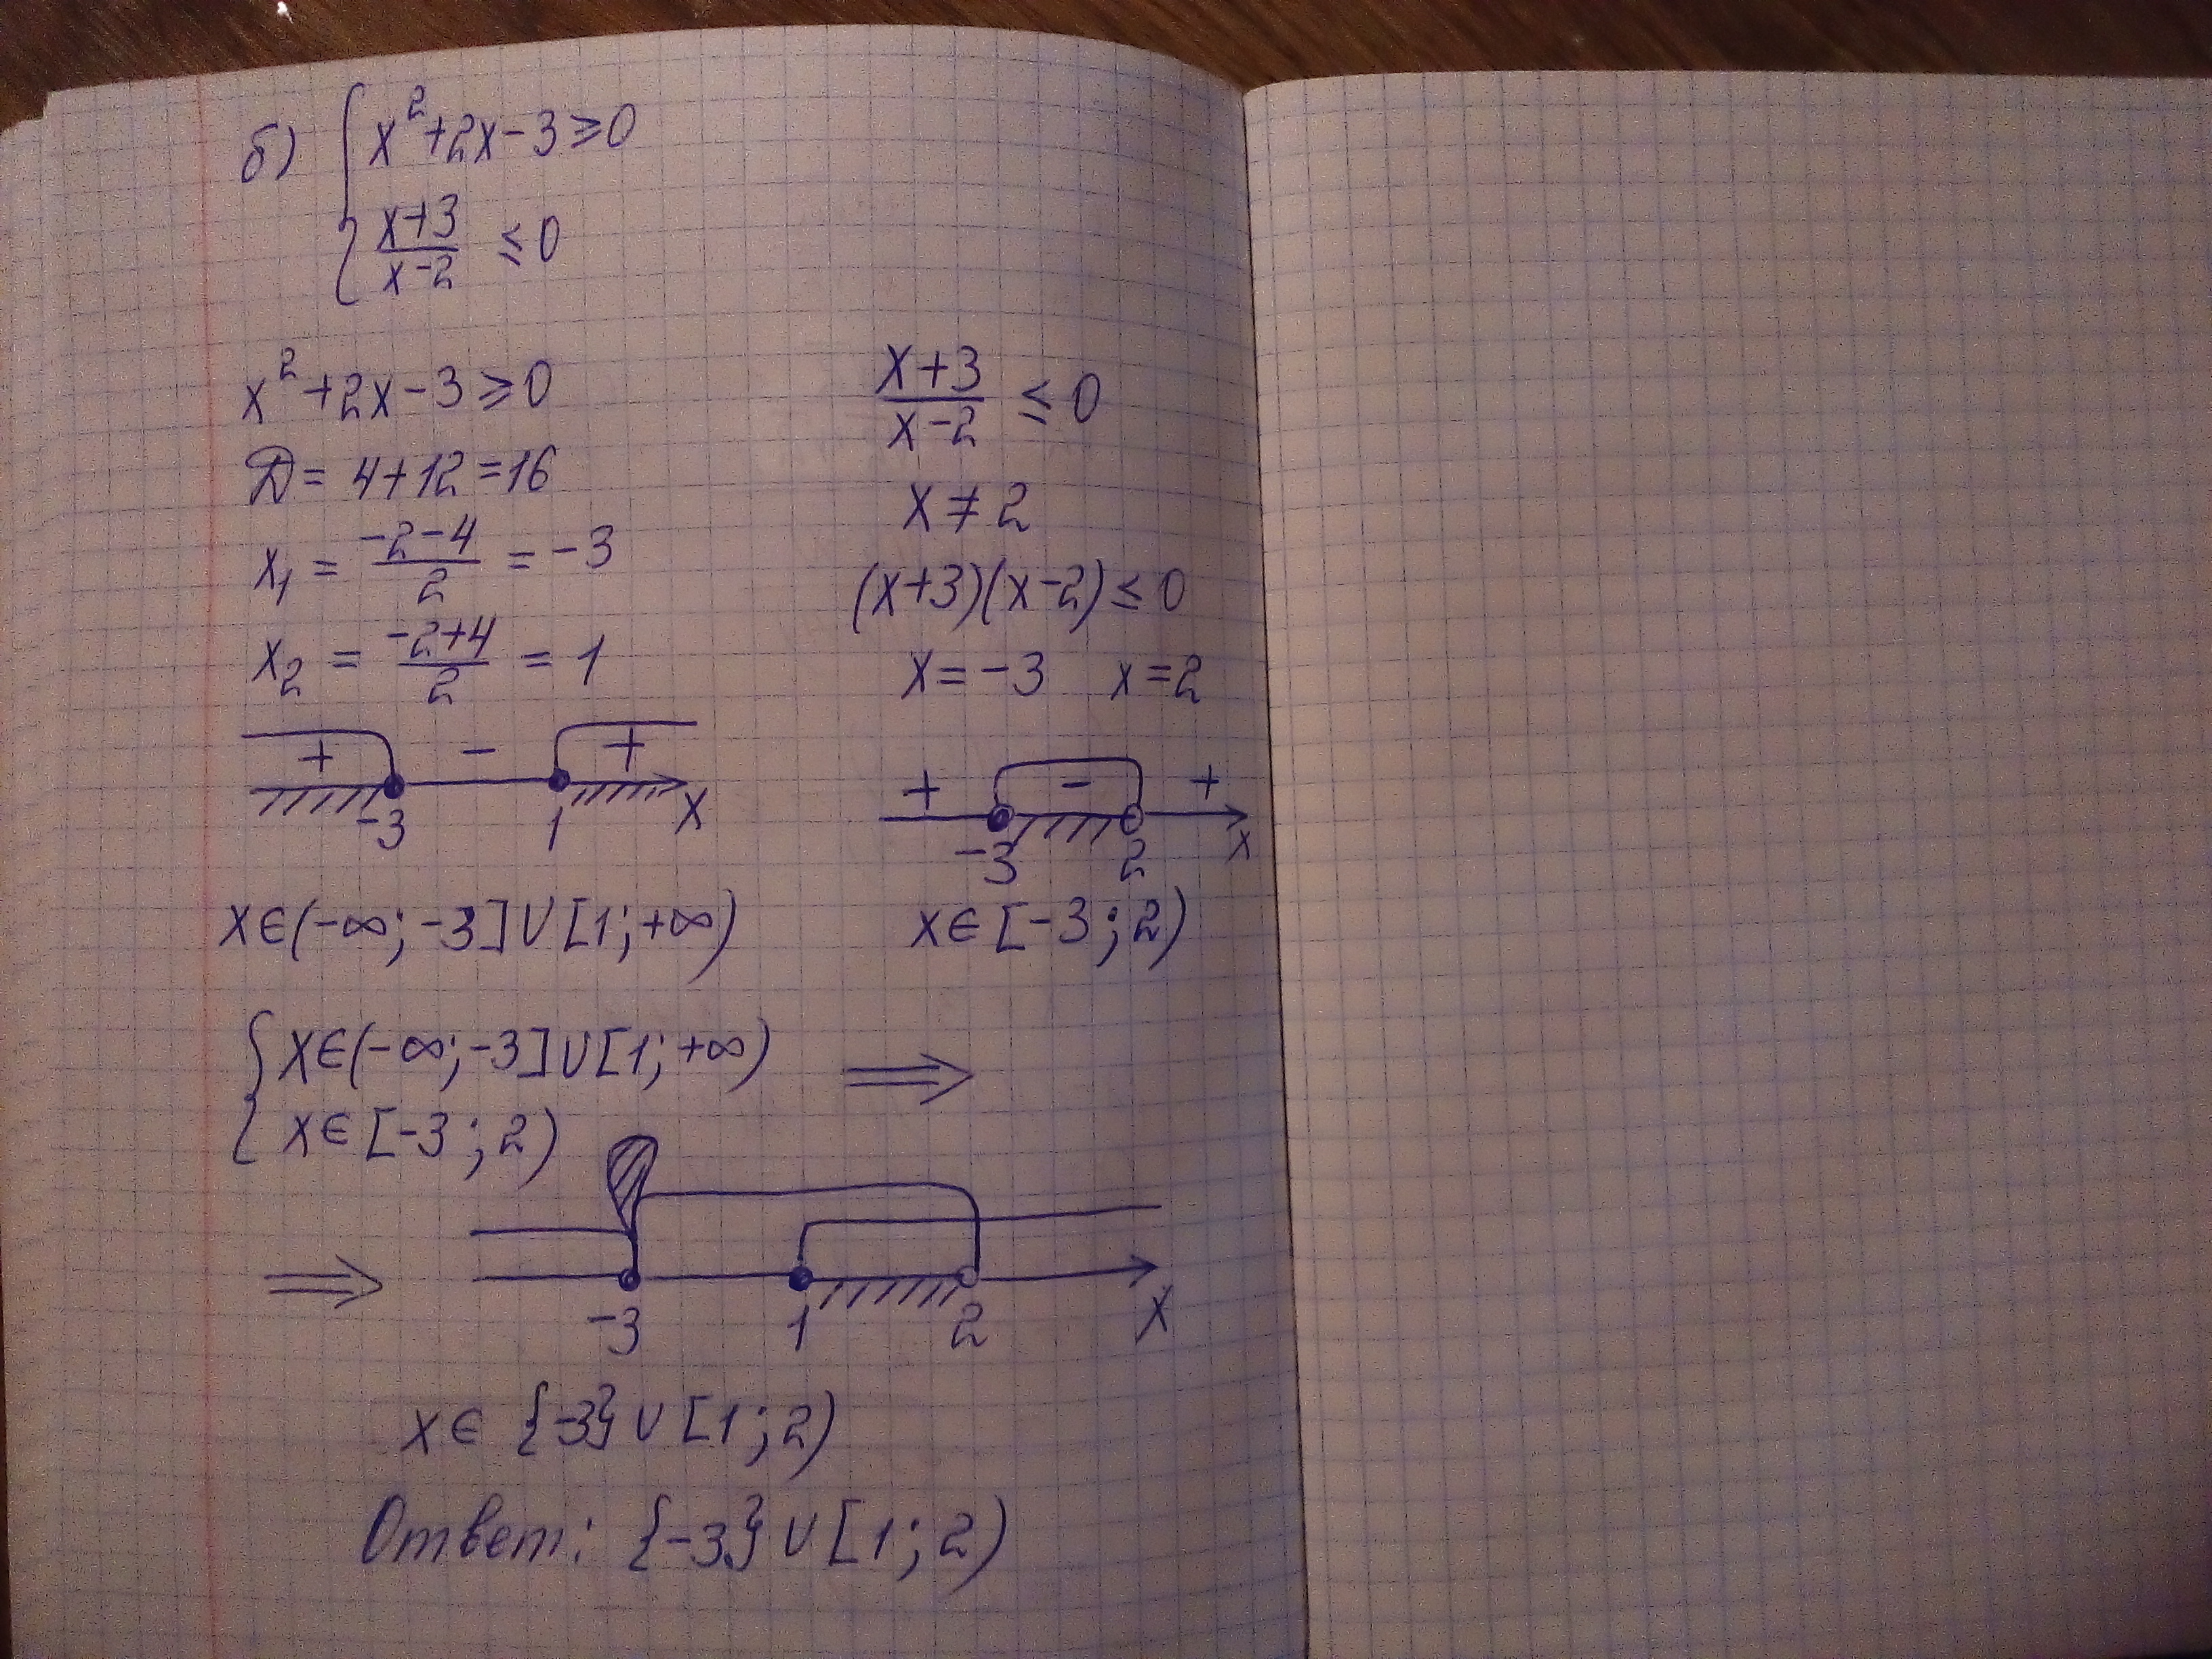 б) { x²+2x-3≥0
{ (x+3)/(x-2) ≤0
x²+2x-3≥0
D= 4+12=16
x₁ = (-2-4)/2 = -3
x₂ = (-2+4)/2 = 1
+ - +
-3 1 x
x∈(-∞;-3]∪[1;+∞)
(x+3)/(x-2) ≤0
x≠2
(x+3)(x-2)≤0
x=-3 x=2
+ - +
-3 2 x
x∈[-3;2)
{ x∈(-∞;-3]∪[1;+∞) ⟹
{ x∈[-3;2)
⟹
-3 1 2 x
x∈ {-3}∪[1;2)
Ответ: {-3}∪[1;2)